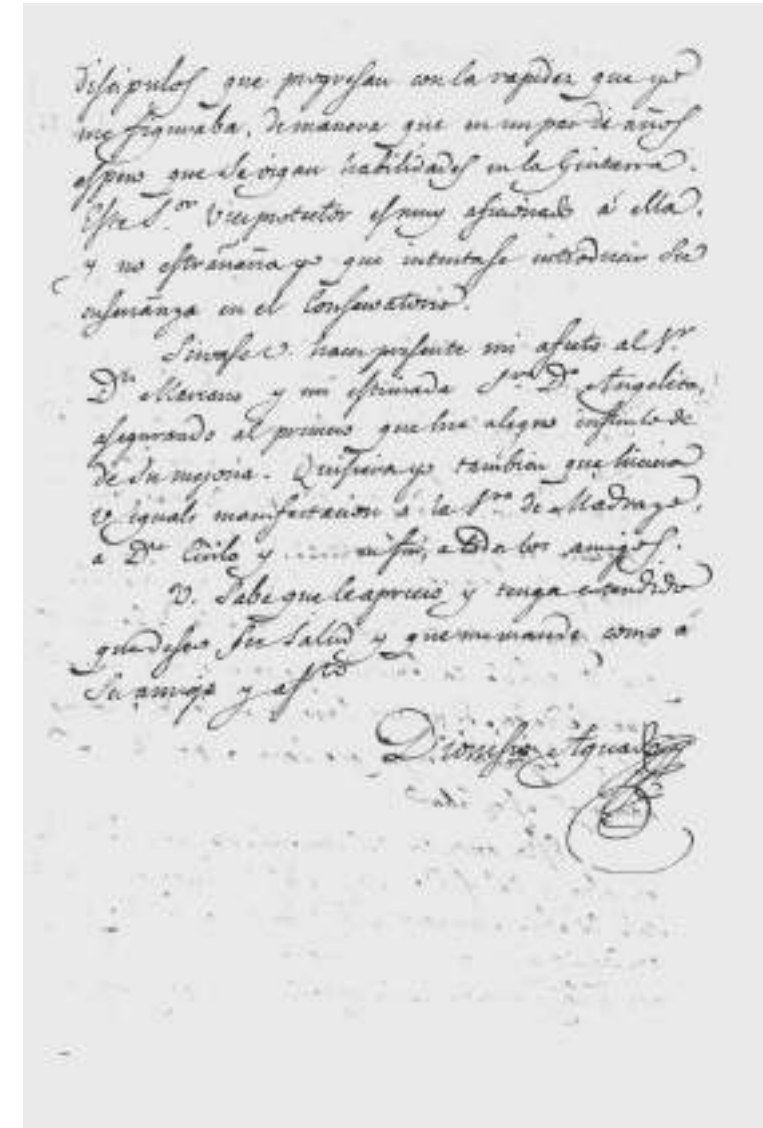 discipulos que progresan con la rapidez que yo
me figuraba, de manera que en un par de años
espero que se oigan habilidades en la Guitarra.
Este S.or Viceprotector es muy aficionado á ella,
y no estrañaria yo que intentase introducir su
enseñanza en el Conservatorio.
Sirvase V. hacer presente mi afecto al S.r
D.n Mariano y mi estimada S.ra D.a Angelita,
asegurando al primero que me alegro infinito de
de su mejoria. Quisiera yo tambien que hiciera
V. igual manifestacion á la S.ra de Madrazo,
a D.n Cirilo y en fin, a todos los amigos.
V. sabe que le aprecio y tenga entendido
que deseo su salud y que me mande como á
su amigo y af.cto
Dionisio Aguado